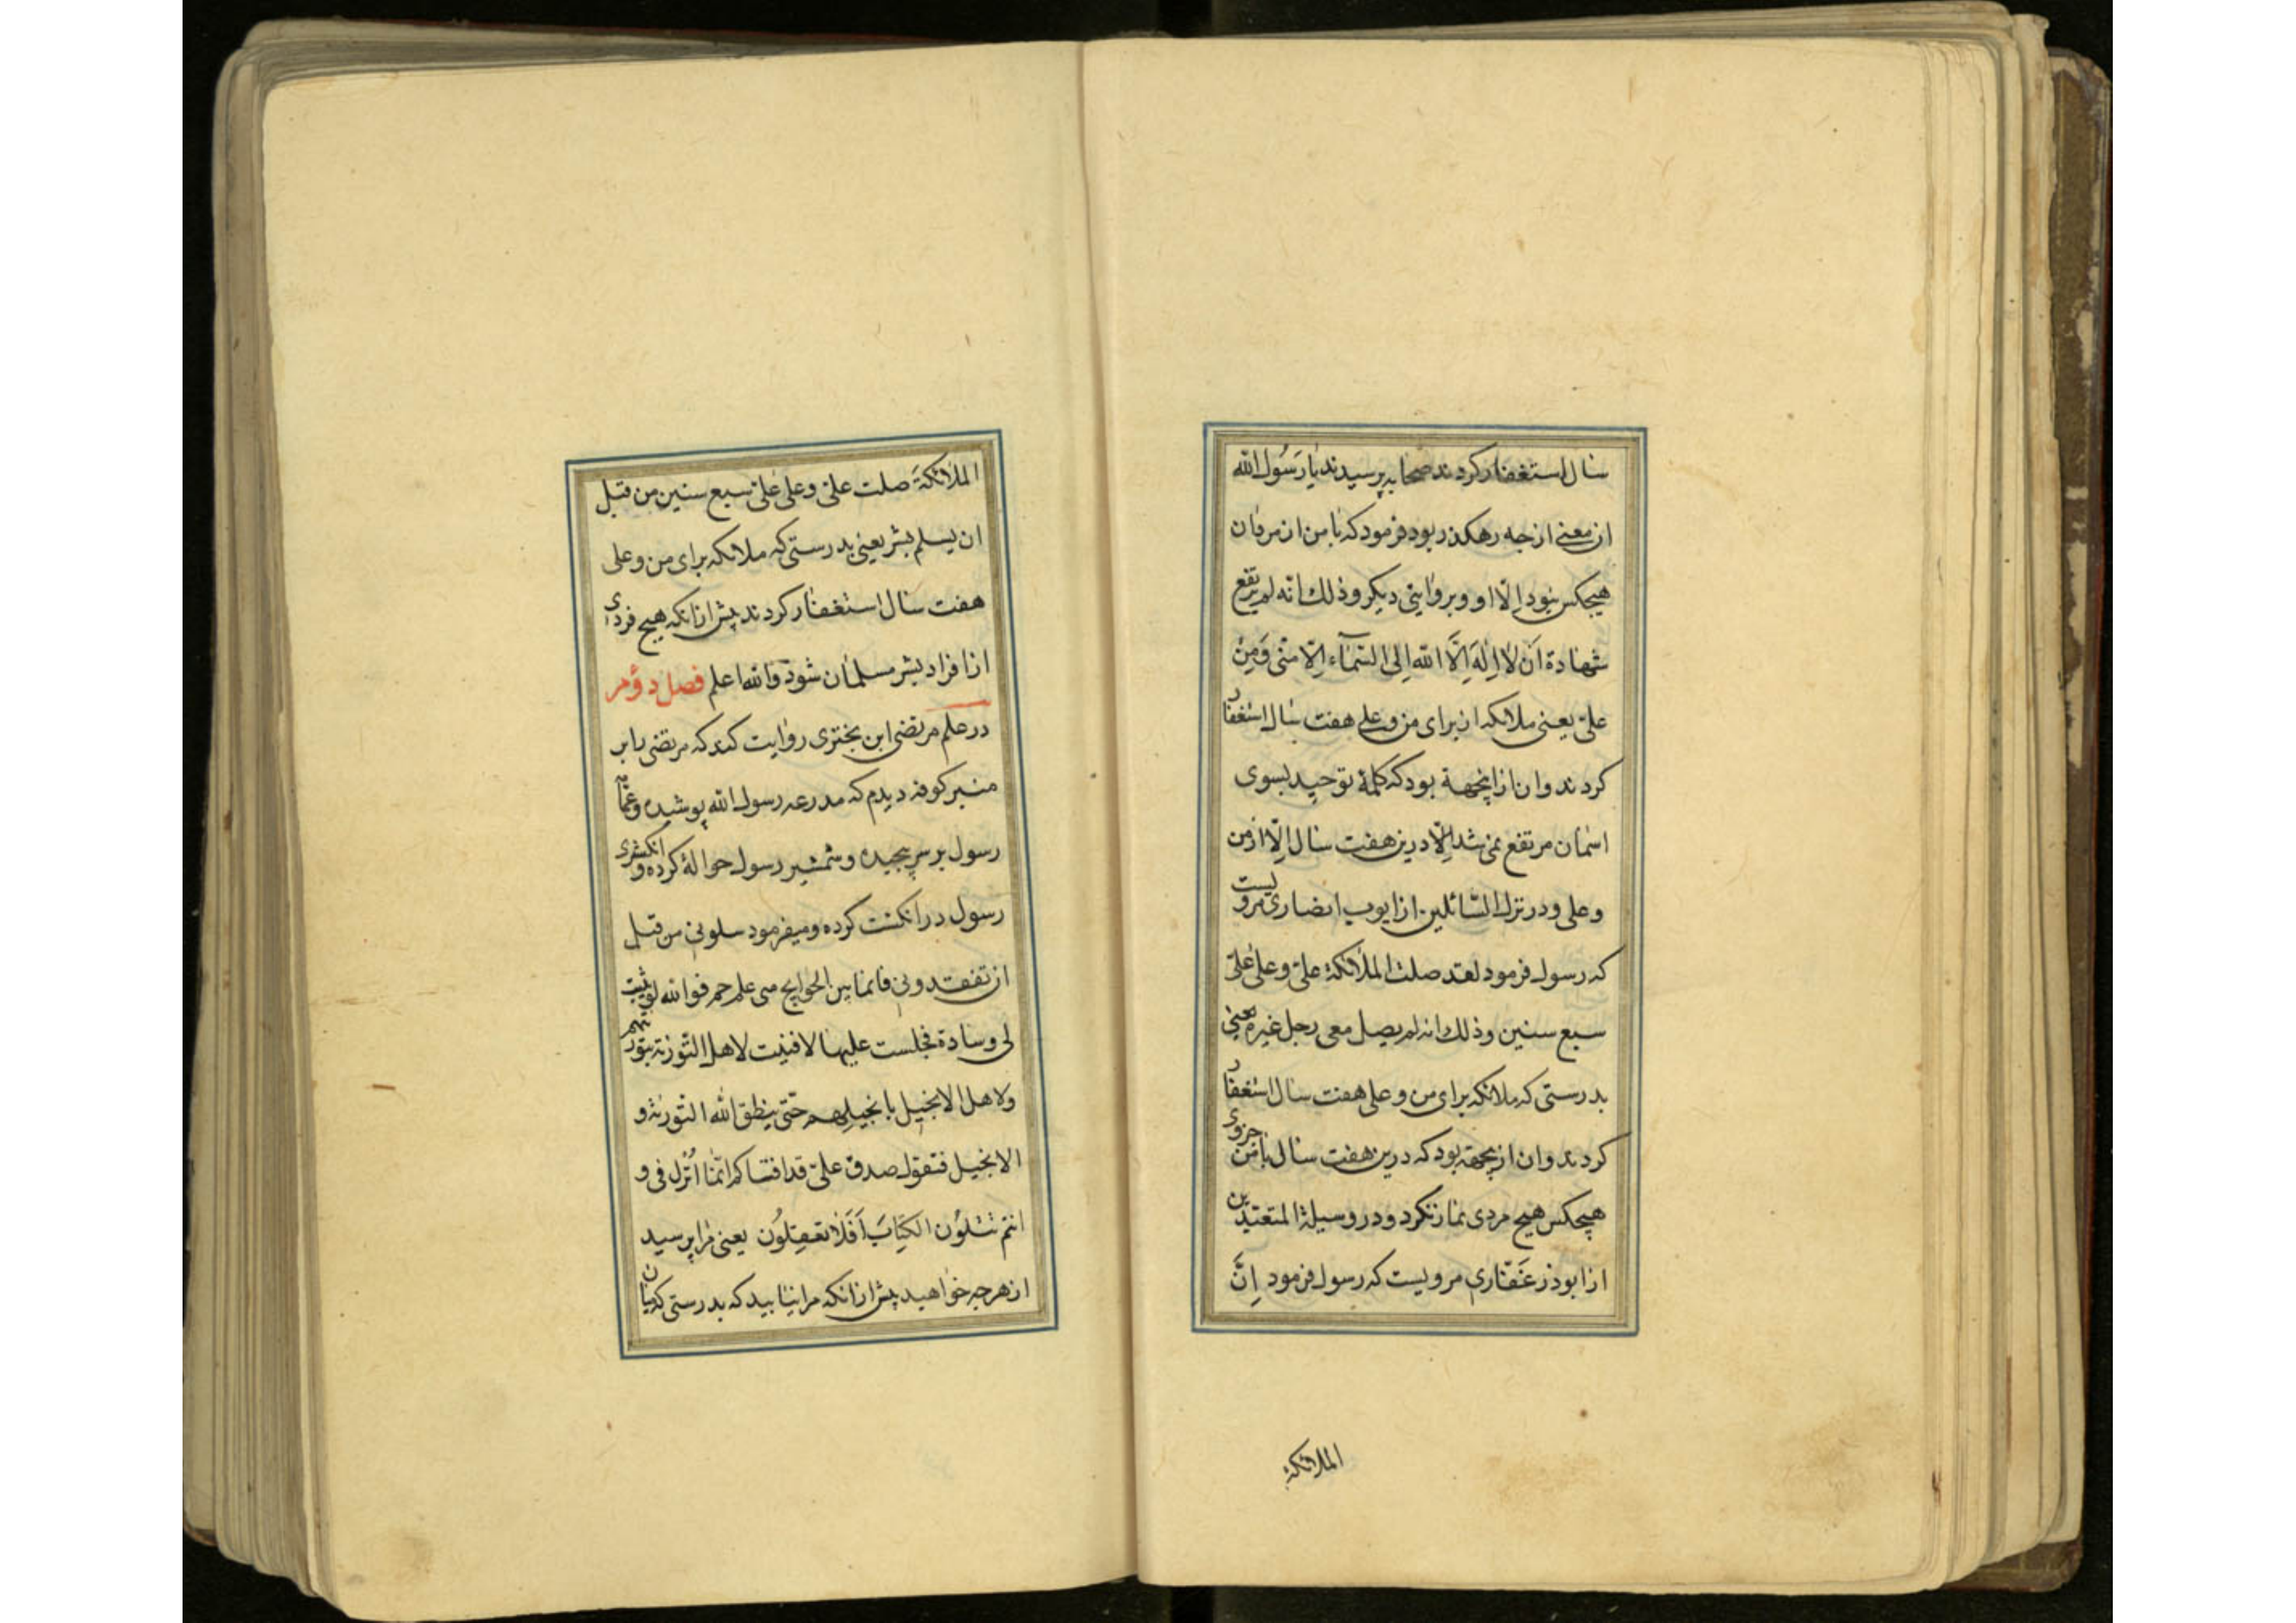 سال استغفار کردند صحابه پرسیدند یا رَسُول الله
این معنی از چه رهکذر بود فرمود که با من از مردان
هیچکس نبود اِلّا او و بروایتی دیکر و ذلك انه لم یرتفع
شهادة اَن لا اِلهَ اِلَّا الله اِلی السّمآء اِلّا منّی وَ مِنْ
علیّ یعنی ملائکه از برای من و علی هفت سال استغفار
کردند و ان از اینجهة بود که کلمۀ توحید بسوی
اسمان مرتفع نمی شد اِلّا درین هفت سال اِلّا از من
و علی و در نزل السّائلین از ایوب انصاری مرویست
که رسول فرمود لقد صلت الملائکة علیّ و علی علیّ
سبع سنین و ذلك انه لم یصل معی رجل غیره یعنی
بدرستی که ملائکه برای من و علی هفت سال استغفار
کردند و ان ازیجهة بود که درین هفت سال با من جزوی
هیچکس هیچ مردی نماز نکرد و در وسیلة المتعبّدین
از ابوذر غَفّاری مرویست که رسول فرمود اِنَّ
الملائکة
الملائکةَ صلت علیّ و علی علیّ سبع سنین من قبل
ان یسلم بشر یعنی بدرستی که ملائکه برای من و علی
هفت سال استغفار کردند پیش از انکه هیچ فردی
از افراد بشر مسلمان شود و الله اعلم فصل دؤم
در علم مرتضی ابن بختری روایت کند که مرتضی را بر
منبر کوفه دیدم که مدرعه رسول الله پوشیده و عمامه
رسول بر سر پیچیده و شمشیر رسول حوالۀ کرده و انکشتری
رسول در انکشت کرده و میفرمود سلونی من قبل
ان تفقدونی فانما بین الجوانح منی علم جم فوالله لو ثنیت
لی وسادة فجلست علیها لافتیت لاهل التّوریة بتوریتهم
و لاهل الانجیل بانجیلهم حَتّی ینطق الله التّوریة و
الانجیل فتقول صدق علیّ قد افتاکم اتمّا اُنْزل فی و
انتم تَتْلوُن الکِتابَ اَفَلا تعقِلُون یعنی مرا پرسید
از هرچه خواهید پیش از انکه مرا نیابید که بدرستی که میان